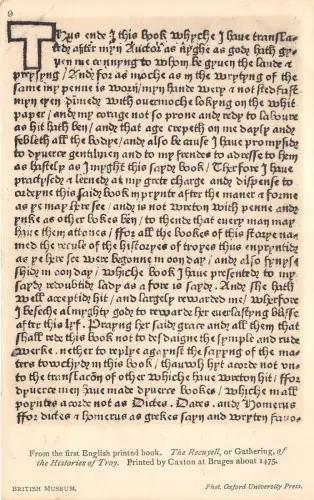 9
Thus ende I this book whyche I have transla-
ted after myn Auctor as nyghe as god hath gy-
ven me connyng to whom be gyven the laude &
preysyng / And for as moche as in the wrytyng of the
same my penne is worn / myn hande wery & not stedfast
myn eyen dimed with overmoche lokyng on the whit
paper / and my corage not so prone and redy to laboure
as hit hath ben / and that age crepeth on me dayly and
febleth all the bodye / and also be cause I have promysid
to dyverce gentilmen and to my frendes to adresse to hem
as hastely as I myght this sayd book / Therfore I have
practysed & lerned at my grete charge and dispense to
ordeyne this said book in prynte after the maner & forme
as ye may here see / and is not wreton with penne and
ynke as other bokes ben / to thende that every man may
have them attones / ffor all the bookes of this storye na-
med the recule of the historyes of troyes thus enpryntid
as ye here see were begonne in oon day / and also fynys-
shid in oon day / whiche book I have presented to my
sayd redoubtid lady as a fore is sayd. And she hath
well acceptid hit / and largely rewarded me / wherfore
I beseche almyghty god to rewarde her everlastyng blisse
after this lyf. Prayng her said grace and all them that
shall rede this book not to desdaigne the symple and rude
werke. nether to replye agaynst the sayyng of the ma-
ters towchyd in this book / thauwh hyt acorde not vn-
to the translacōn of other whiche have wreton hit / ffor
dyverce men have made dyverce bookes / whiche in all
poyntes acorde not as Dictes. Dares. and Homerus
ffor dictes & homerus as grekes sayn and wryten favo-
From the first English printed book. The Recuyell, or Gathering, of
the Histories of Troy. Printed by Caxton at Bruges about 1475.
BRITISH MUSEUM. Phot. Oxford University Press.